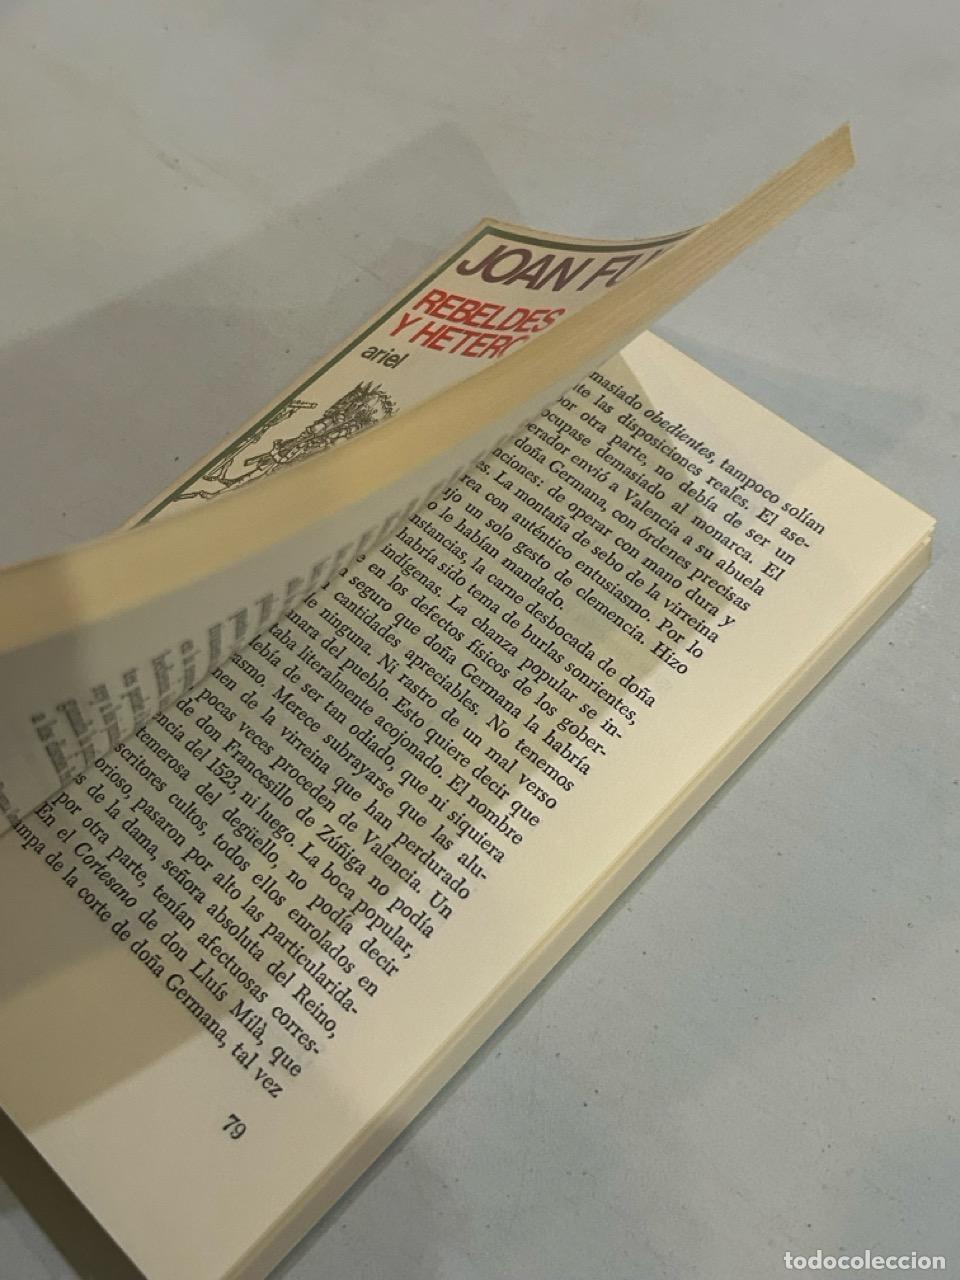 JOAN FU
REBELDES
Y HETERO
ariel
masiado obedientes, tampoco solían
te las disposiciones reales. El ase-
or otra parte, no debía de ser un
ocupase demasiado al monarca. El
perador envió a Valencia a su abuela
doña Germana con órdenes precisas
nciones: de operar con mano dura y
es. La montaña de sebo de la virreina
rea con auténtico entusiasmo. Por lo
ujo un solo gesto de clemencia. Hizo
o le habían mandado.
nstancias, la carne desbocada de doña
habría sido tema de burlas sonrientes,
indígenas. La chanza popular se in-
a en los defectos físicos de los gober-
seguro que doña Germana la habría
cantidades apreciables. No tenemos
de ninguna. Ni rastro de un mal verso
mara del pueblo. Esto quiere decir que
taba literalmente acojonado. El nombre
debía de ser tan odiado, que ni siquiera
asmo. Merece subrayarse que las alu-
men de la virreina que han perdurado
pocas veces proceden de Valencia. Un
de don Francesillo de Zúñiga no podía
encia del 1523, ni luego. La boca popular,
temerosa del degüello, no podía decir
scritores cultos, todos ellos enrolados en
orioso, pasaron por alto las particularida-
s de la dama, señora absoluta del Reino,
por otra parte, tenían afectuosas corres-
En el Cortesano de don Lluís Milà, que
ampa de la corte de doña Germana, tal vez
79
todocoleccion